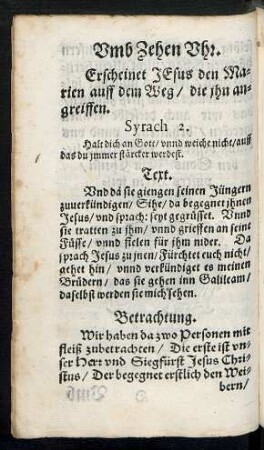 Vmb Zehen Vhr.
Erscheinet JEsus den Ma-
rien auff dem Weg / die jhn an-
greiffen.
Syrach 2.
Halt dich an Gott / vnnd weicht nicht / auff
das du jmmer stärcker werdest.
Text.
Vnd da sie giengen seinen Jüngern
zuuerkündigen / Sihe / da begegnet jhnen
Jesus / vnd sprach: seyt gegrüsset. Vnnd
sie tratten zu jhm / vnnd grieffen an seine
Füsse / vnnd fielen für jhm nider. Da
sprach Jesus zu jnen / Fürchtet euch nicht /
gehet hin / vnnd verkündiget es meinen
Brüdern / das sie gehen inn Galileam /
daselbst werden sie mich sehen.
Betrachtung.
Wir haben da zwo Personen mit
fleiß zubetrachten / Die erste ist vn-
ser Herr vnd Siegfürst Jesus Chri-
stus / Der begegnet erstlich den Wei-
bern /